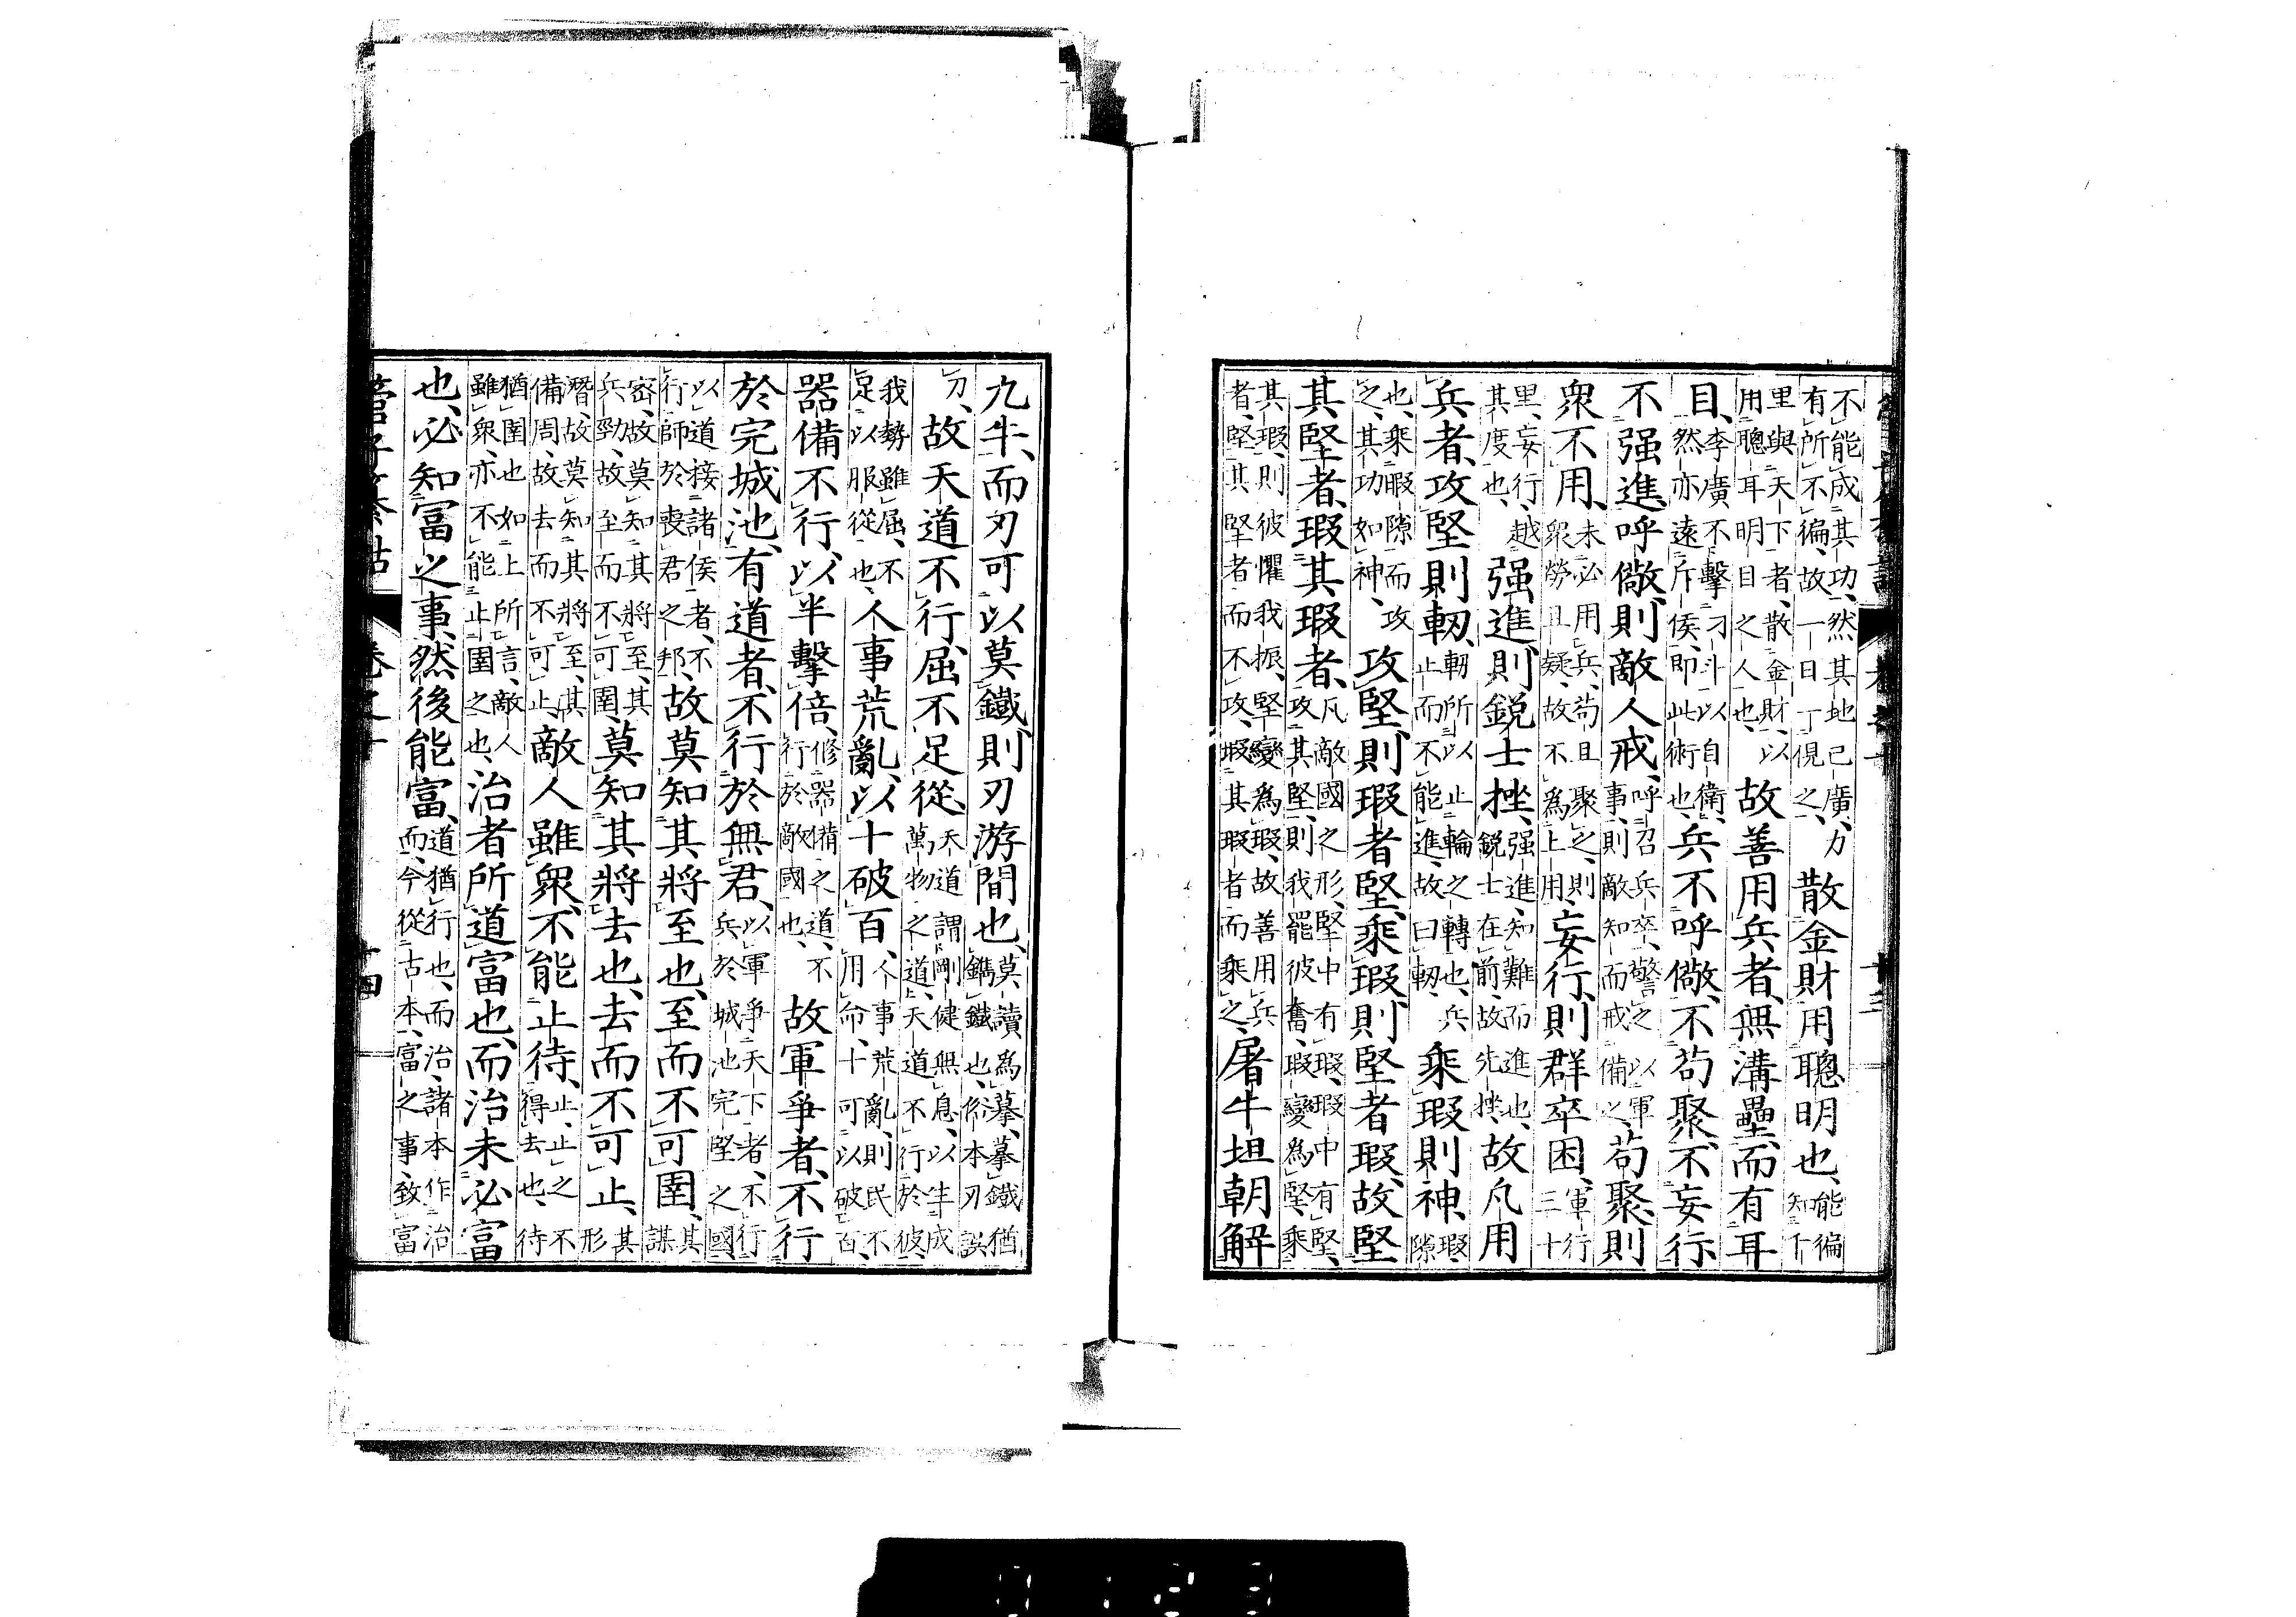 不能成其功、然其地已廣、力有所不徧、故一日一俔之、散金財用聰明也、能徧知下
里與天下者、散金財、以用聰耳明目之人也、故善用兵者、無溝壘、而有耳
目、李廣不擊刁斗以自衛、然亦遠斥侯、即此術也、兵不呼儆、不苟聚、不妄行
不强進、呼儆、則敵人戒、呼召兵卒、警之以軍事、則敵知而戒備之、苟聚、則
衆不用、未必用兵、苟且聚之、則衆勞且疑、故不爲上用、妄行、則群卒困、軍行三十
里、妄行、越其度也、强進、則鋭士挫、强進、知難而進也、鋭士在前、故先挫、故凡用
兵者、攻堅則軔、軔所以止輪之轉也、兵止而不能進、故曰軔、乘瑕則神、瑕隙
也、乘暇隙而攻之、其功如神、攻堅、則瑕者堅、乘瑕、則堅者瑕、故堅
其堅者、瑕其瑕者、凡敵國之形、堅中有瑕、瑕中有堅、攻其堅、則我罷彼奮、瑕變爲堅、乘
其瑕、則彼懼我振、堅變爲瑕、故善用兵者、堅其堅者而不攻、瑕其瑕者而乘之、屠牛坦朝解
九牛、而刃可以莫鐵、則刃游間也、莫讀爲摹、摹鐵猶鐫鐵也、俗本刃誤
刀、故天道不行、屈不足從、天道謂剛健無息、以生成萬物之道、天道不行於彼、
我勢雖屈、不足以服從也、人事荒亂、以十破百、人事荒亂、則民不用命、十可以破百、
器備不行、以半擊倍、修器備之道、不行於敵國也、故軍爭者、不行
於完城池、有道者、不行於無君、以軍爭天下者、不行兵於城池完堅之國、
以道接諸侯者、不行師於喪君之邦、故莫知其將至也、至而不可圉、其謀
密、故莫知其將至、其兵勁、故至而不可圉、莫知其將去也、去而不可止、其形
潛、故莫知其將至、其備周、故去而不可止、敵人雖衆、不能止待、止、止之不得去也、待
猶圉也、如上所言、敵人雖衆、亦不能止圉之也、治者所道富也、而治未必富
也、必知富之事、然後能富、道猶行也、而治、諸本作治而、今從古本、富之事、致富
管子纂詁 卷之十四